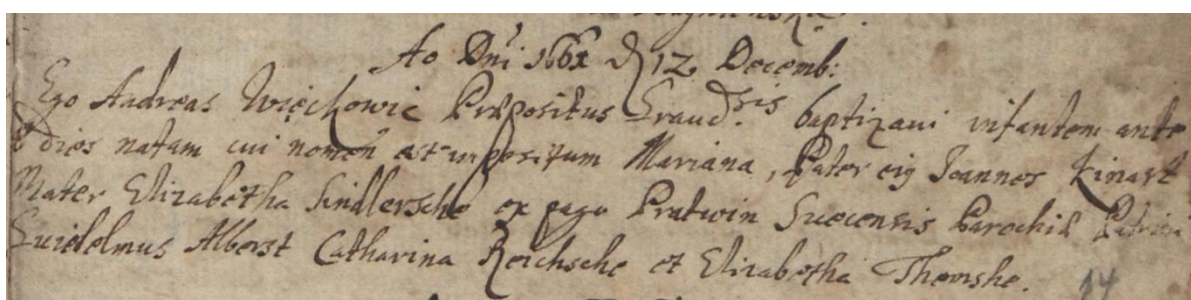 Ao Dni 166x D 12 Decemb:
Ego Andreas Więchowic Præpositus Graud.sis baptizavi infantem ante
8 dies natam cui nomen est impositum Mariana, Pater eig Joannes Kinart
Mater Elizabetha Sindlersche ex pago Pratwin Suecensis Parochiæ Patrini
Guielelmus Alberst Catharina Reichsche et Elizabetha Themshe.
14